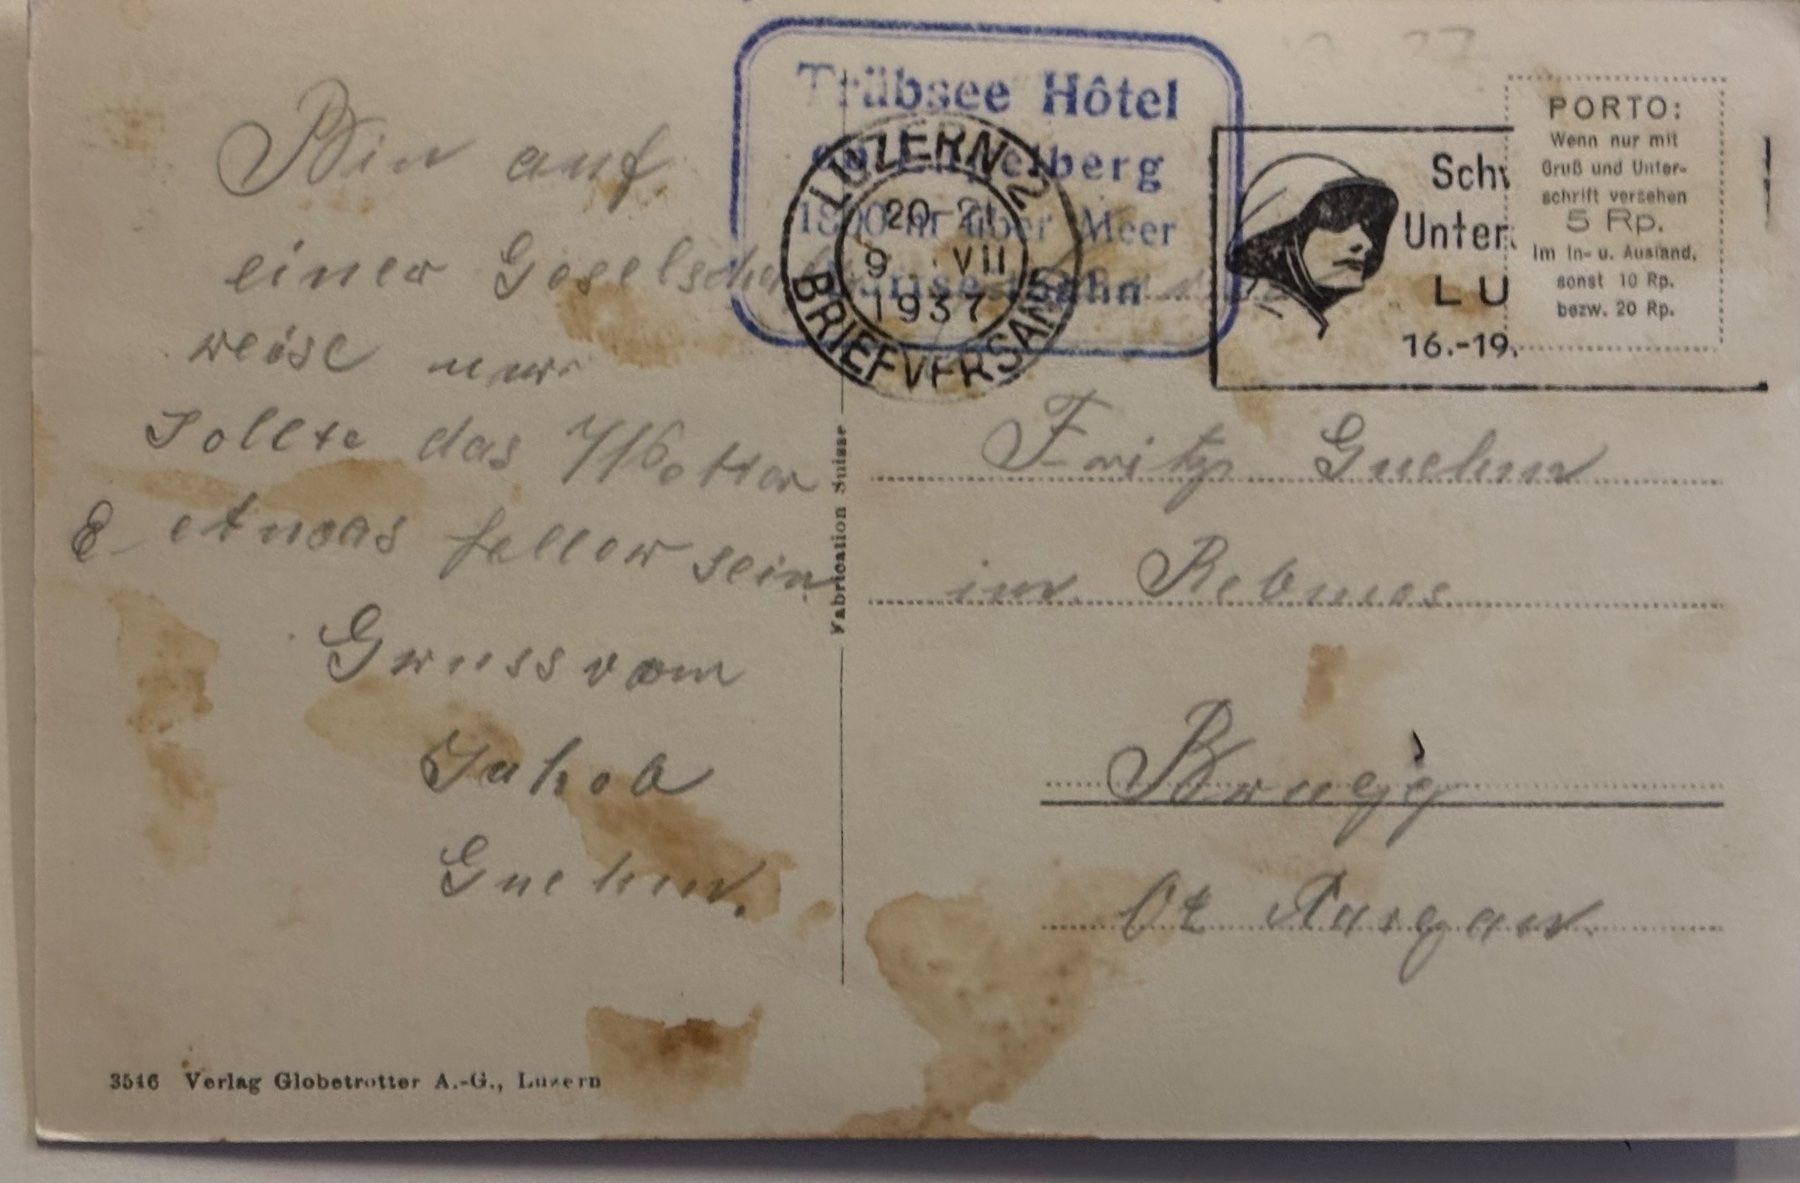 Trübsee Hôtel
Engelberg
1800 m über Meer
LUZERN 2
20-21
9. VII
1937
BRIEFVERSAND
Schw
Unter
LU
16.-19.
PORTO:
Wenn nur mit
Gruß und Unter-
schrift versehen
5 Rp.
im In- u. Ausland,
sonst 10 Rp.
bezw. 20 Rp.
Bin auf
einer Geselscha
reise nur
sollte das Wetter
etwas heller sein
Gruss vom
Jakob
Guehm.
Fabrication Suisse
Fritz Guehm
im Rebmos
Brugg
Ct Aargau.
3516 Verlag Globetrotter A.-G., Luzern